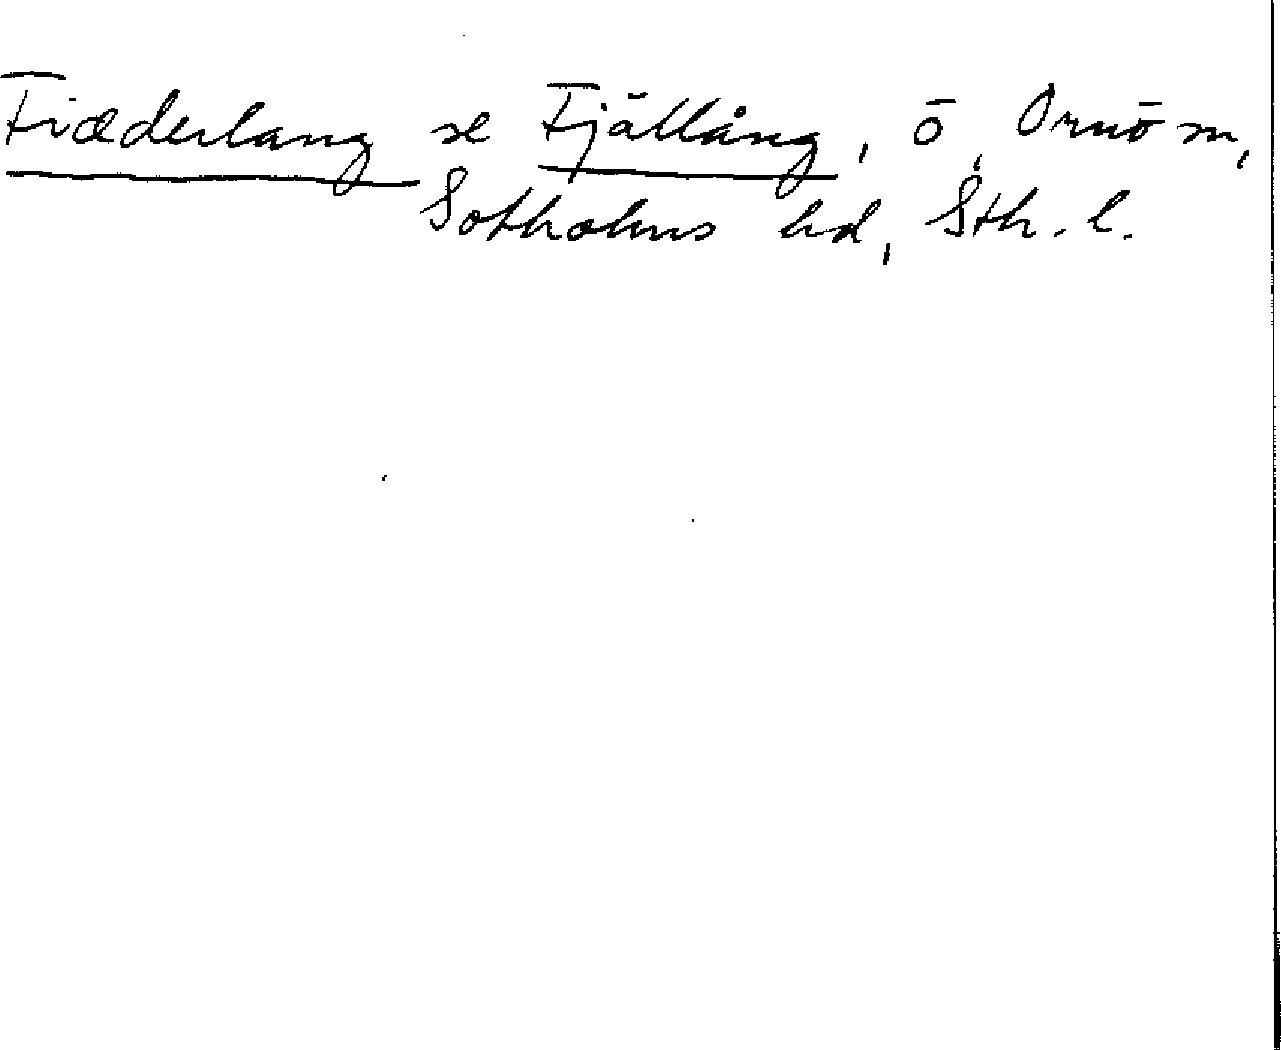 Fiæderlang se Fjällång, ö, Ornö sn,
Sotholms hd, Sth. l.